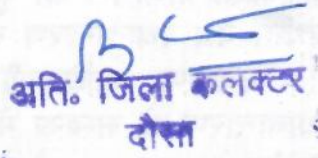 अति० जिला कलक्टर
दौसा